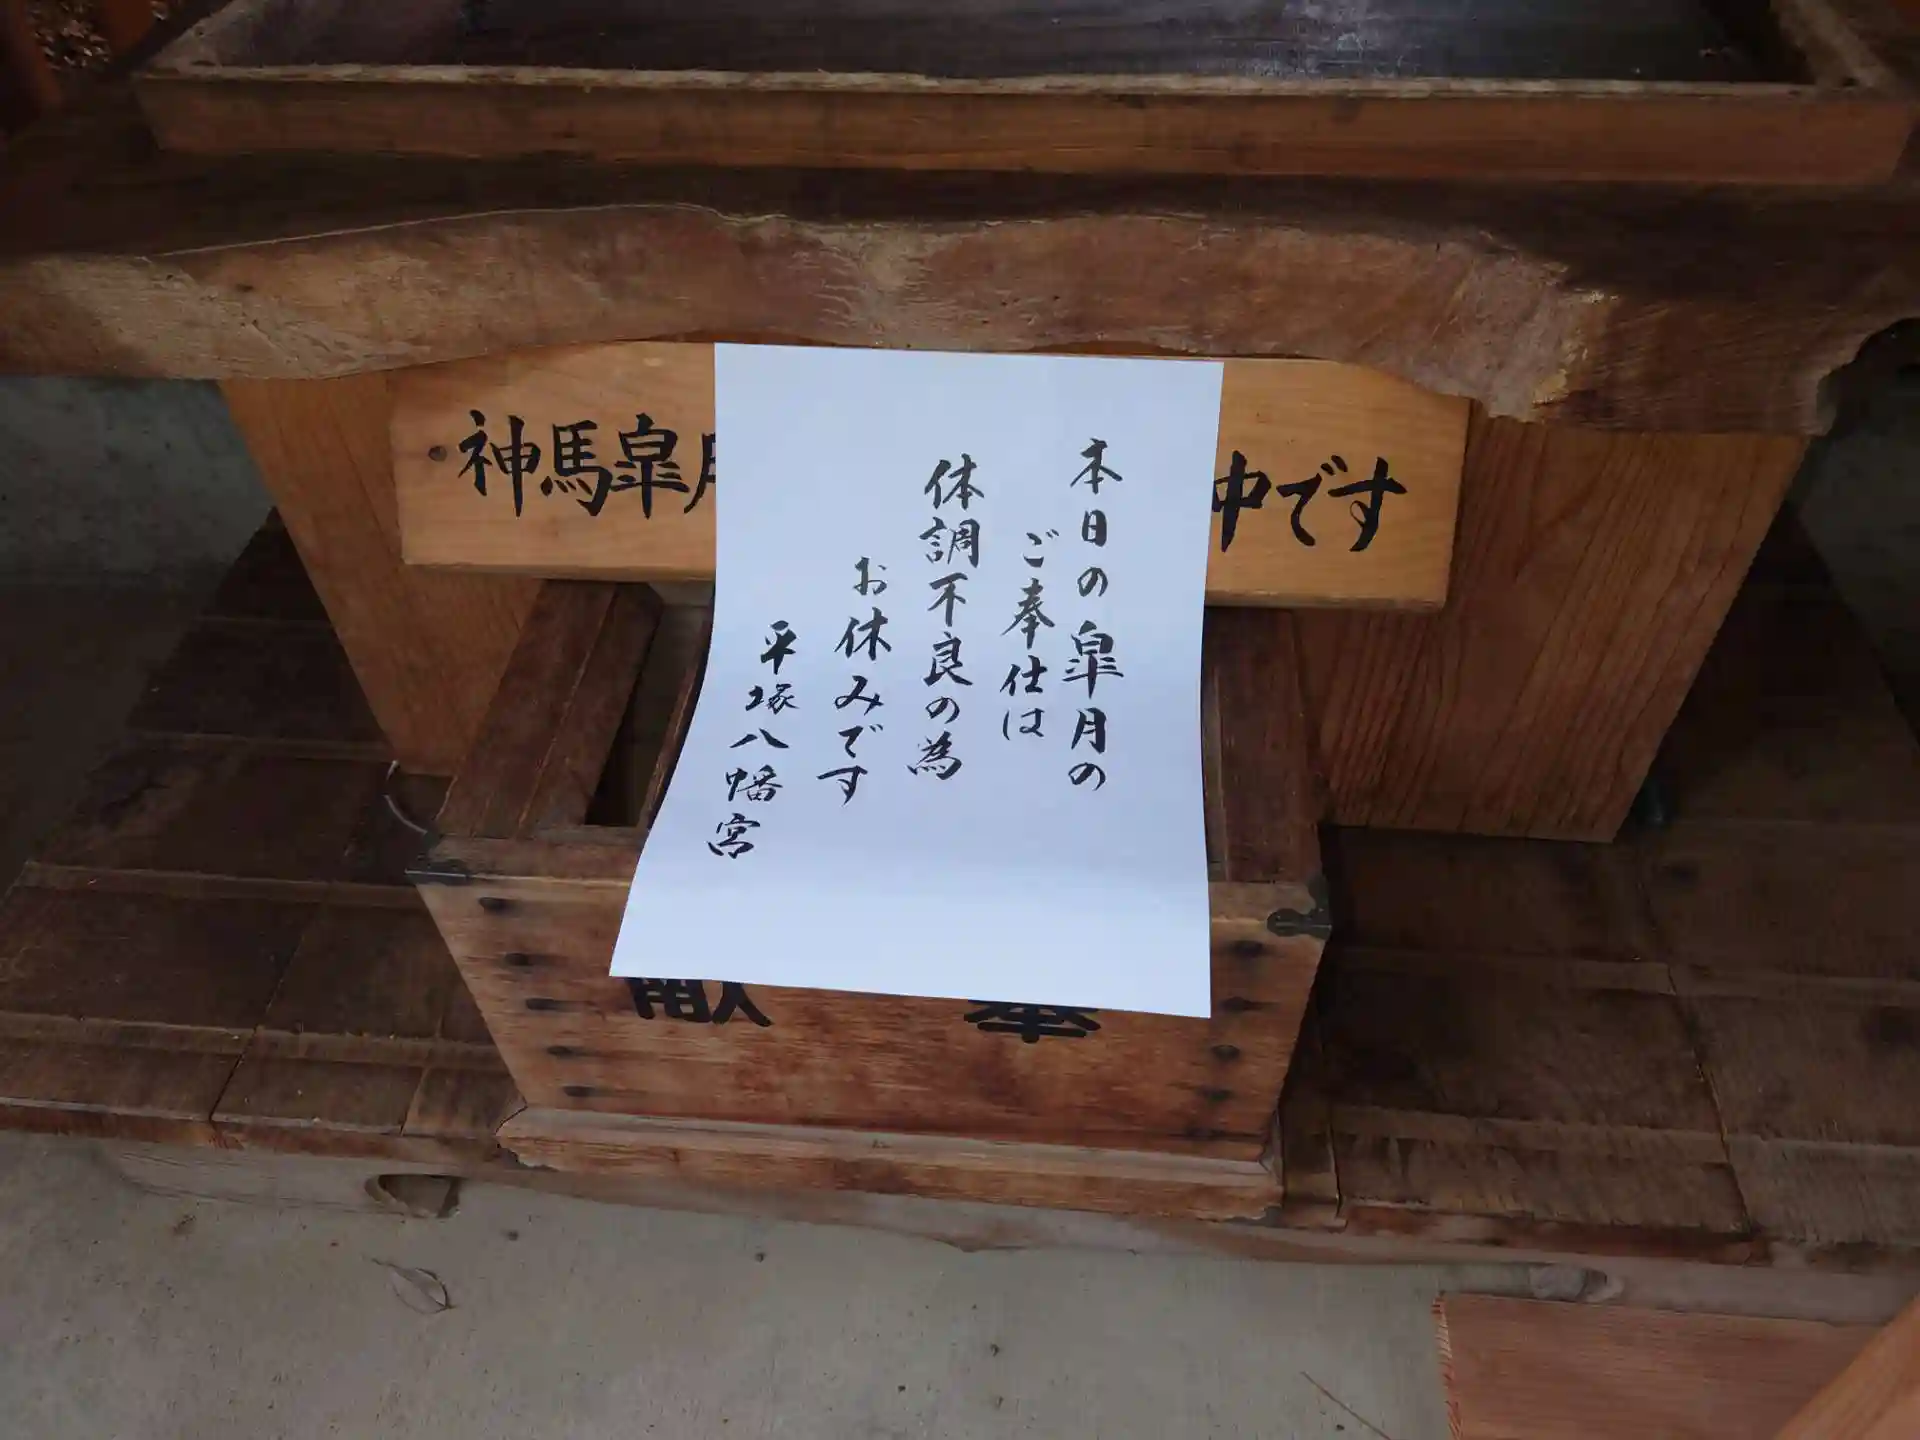 神馬皐月
中です
本日の皐月の
ご奉仕は
体調不良の為
お休みです
平塚八幡宮
奉
献